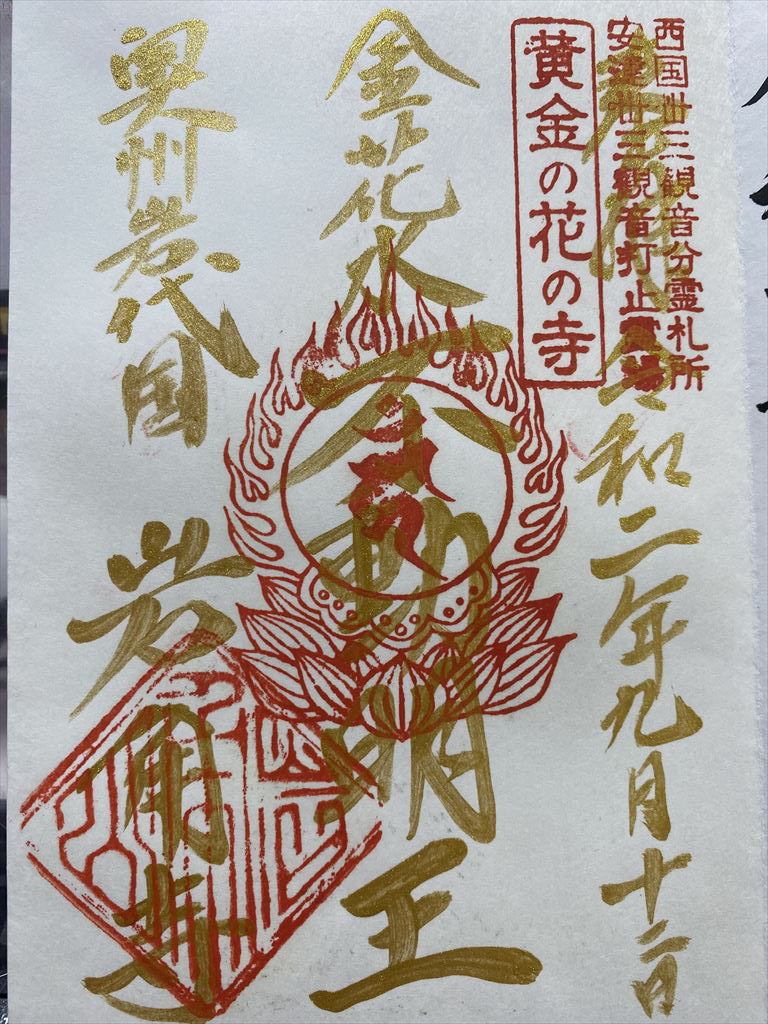 西国丗三観音分霊札所
安達丗三観音打止霊場
黄金の花の寺
令和二年九月十二日
金花水
不動明王
奥州岩代国
岩角寺